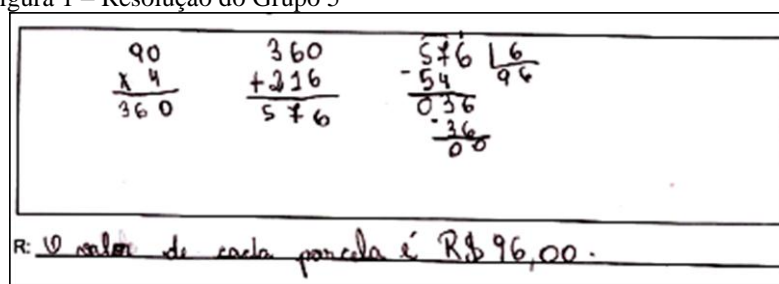 Figura 1 – Resolução do Grupo 3
90
x 4
360
360
+216
576
576 | 6
- 54 96
036
- 36
00
R: O valor de cada parcela é R$ 96,00.